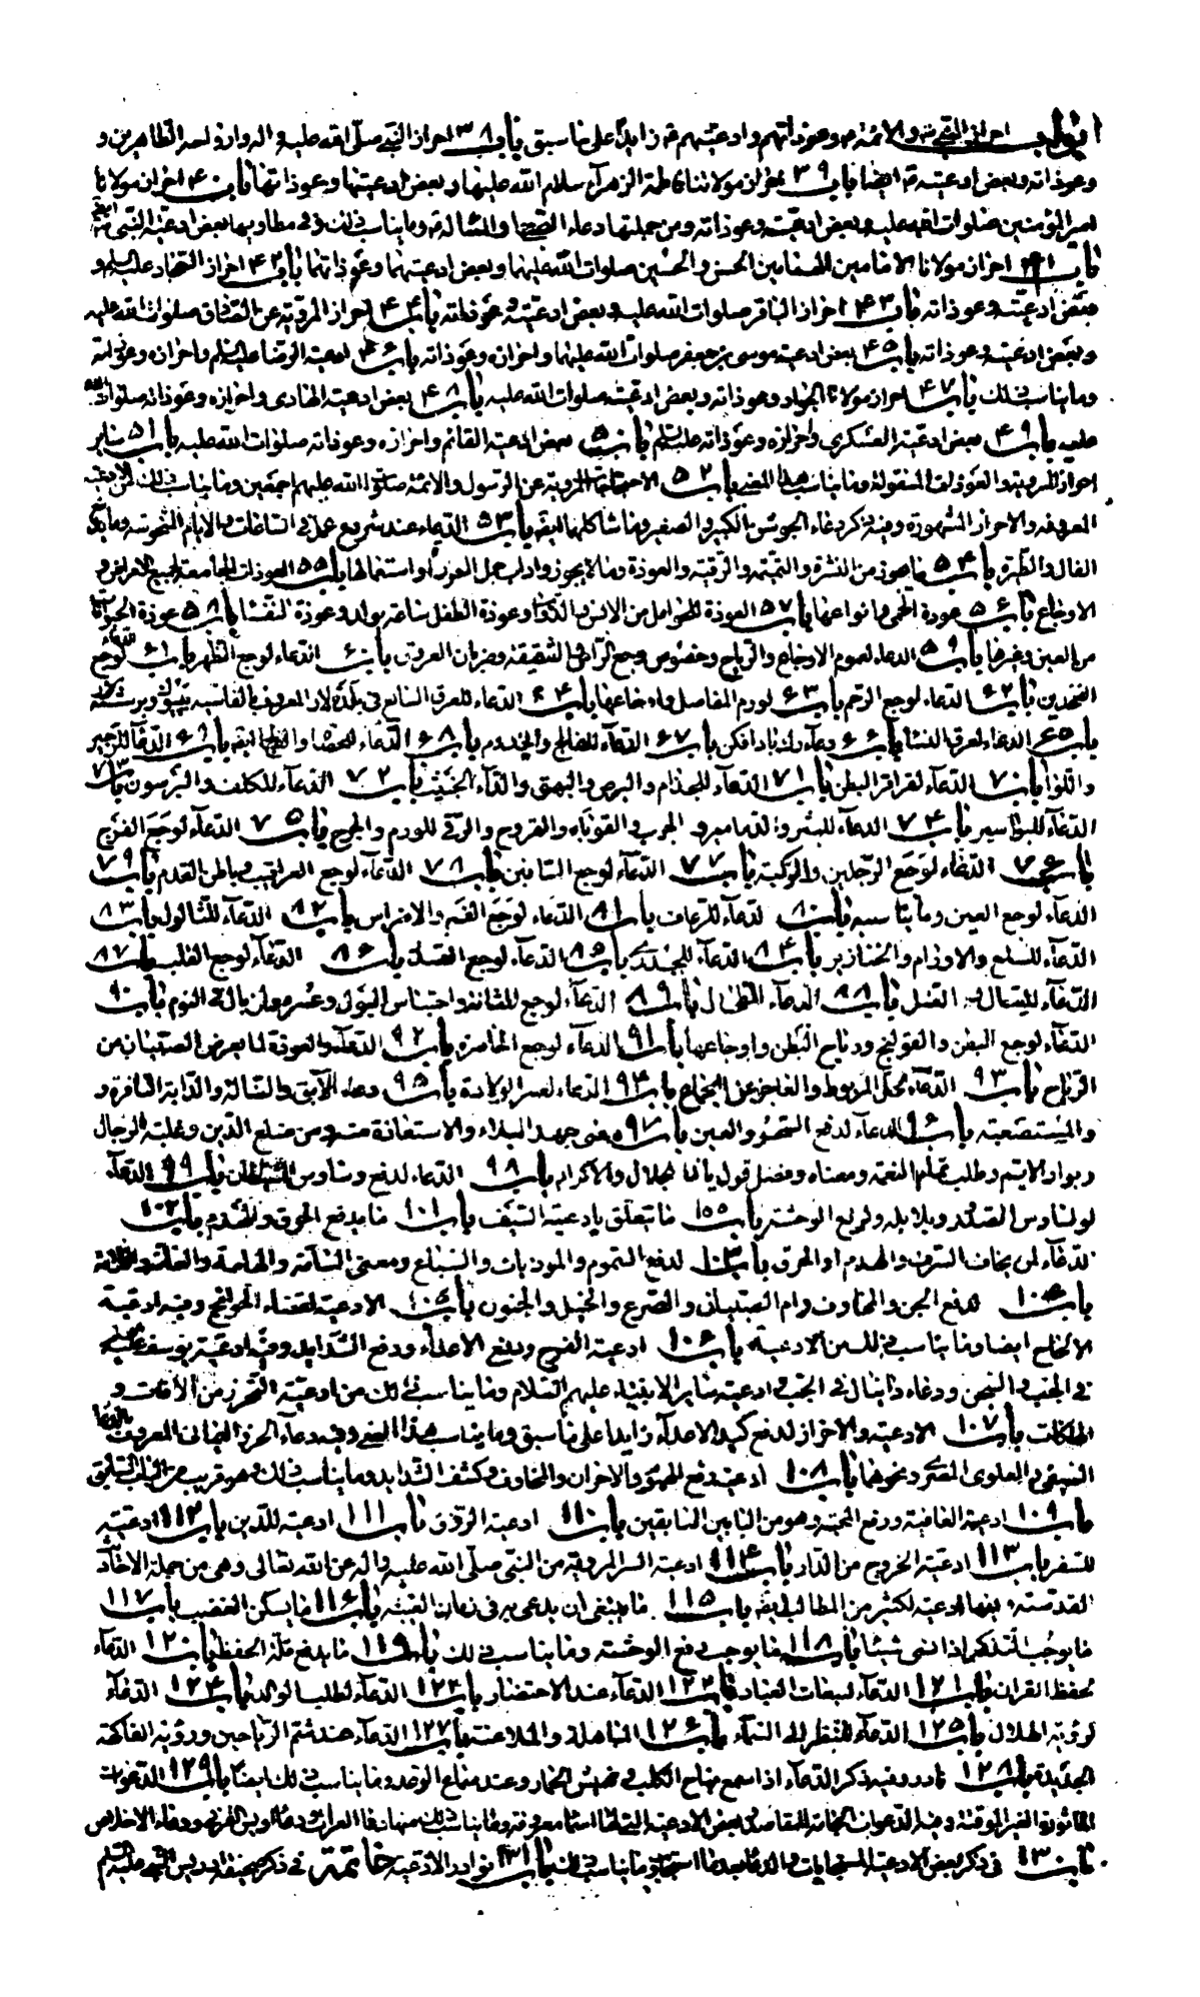 ابواب احراز النبى ص والائمة ع وعوذاتهم وادعيتهم ع زايدا على ما سبق باب ٣٨ احراز النبى صلى الله عليه واله وازواجه الطاهرين و
وعوذاته وبعض ادعيته ع ايضا باب ٣٩ احراز مولاتنا فاطمة الزهرآء سلام الله عليها وبعض ادعيتها وعوذاتها باب ٤٠ احراز مولانا
امير المؤمنين صلوات الله عليه وبعض ادعيته وعوذاته ومن جملتها دعاء وما يناسب ذلك وفى مطاويها بعض ادعية النبى ص ايضا
باب ٤١ احراز مولانا الامامين الهمامين الحسن والحسين صلوات الله عليهما وبعض ادعيتهما وعوذاتهما باب ٤٢ احراز السجاد عليه السلم و
بعض ادعيته وعوذاته باب ٤٣ احراز الباقر صلوات الله عليه وبعض ادعيته وعوذاته باب ٤٤ احراز المروية عن الصادق صلوات الله عليه
وبعض ادعيته وعوذاته باب ٤٥ بعض ادعية موسى بن جعفر صلوات الله عليهما واحرازه وعوذاته باب ٤٦ ادعية الرضا عليه السلم واحرازه وعوذاته
وما يناسب ذلك باب ٤٧ احراز مولانا الجواد وعوذاته وبعض ادعيته صلوات الله عليه باب ٤٨ بعض ادعية الهادى واحرازه وعوذاته صلوات الله
عليه باب ٤٩ بعض ادعية العسكرى واحرازه وعوذاته عليه السلم باب ٥٠ بعض ادعية القائم واحرازه وعوذاته صلوات الله عليه باب ٥١ ساير
احراز المروية والعوذ المنقولة وما يناسب هذا المعنى باب ٥٢ الاحتجابات المروية عن الرسول والائمة صلوات الله عليهم اجمعين وما يناسب ذلك من الادعية
المعروفة والاحراز المشهورة وفيه ذكر دعاء الجوشن الكبير والصغير وما شاكلهما ايضا باب ٥٣ الدعاء عند شروع عمل فى الساعات والايام المنحوسة وما يدفع
الفال والطيرة باب ٥٤ ما يجوز من النشرة والتميمة والرقية والعوذة وما لا يجوز واداب حمل العوذ او استعمالها باب ٥٥ العوذات الجامعة لجميع الامراض و
الاوجاع باب ٥٦ عوذة الحمى وانواعها باب ٥٧ العوذة للحوامل من الانس والدواب وعوذة الطفل ساعة يولد وعوذة النفساء باب ٥٨ عوذة الحيوانات
من العين وغيرها باب ٥٩ الدعاء لعموم الاوجاع والرياح وخصوص وجع الرأس والشقيقة وضربان العروق باب ٦٠ الدعاء لوجع الظهر باب ٦١ الدعاء لوجع
الفخذين باب ٦٢ الدعاء لوجع الرحم باب ٦٣ لورم المفاصل واوجاعها باب ٦٤ الدعاء للعرق السائع فى بلدة لار المعروف فى الفارسية
باب ٦٥ الدعاء لعرق النسا باب ٦٦ دعاء رفع بادافكن باب ٦٧ الدعاء للفالج والخدر باب ٦٨ الدعاء للحصاة والفالج ايضا باب ٦٩ الدعاء للزحير
واللوا باب ٧٠ الدعاء لقراقر البطن باب ٧١ الدعاء للجذام والبرص والبهق والداء الخبيث باب ٧٢ الدعاء للكلف والبرسون باب ٧٣
الدعاء للبواسير باب ٧٤ الدعاء للبثر والدماميل و الجرب والقوباء والقروح والرقى للورم والجرح باب ٧٥ الدعاء لوجع الفرج
باب ٧٦ الدعاء لوجع الرجلين والركبة باب ٧٧ الدعاء لوجع الساقين باب ٧٨ الدعاء لوجع العراقيب وباطن القدم باب ٧٩
الدعاء لوجع العين وما يناسبه باب ٨٠ الدعاء للرعاف باب ٨١ الدعاء لوجع الفم والاضراس باب ٨٢ الدعاء للثالول باب ٨٣
الدعاء للسلع والاورام والخنازير باب ٨٤ الدعاء للجدرى باب ٨٥ الدعاء لوجع الصدر باب ٨٦ الدعاء لوجع القلب باب ٨٧
الدعاء للسعال و السل باب ٨٨ الدعاء للطحال باب ٨٩ الدعاء لوجع المثانة واحتباس البول وعسره ولمن بال فى النوم باب ٩٠
الدعاء لوجع البطن والقولنج ورياح البطن واوجاعها باب ٩١ الدعاء لوجع الخاصرة باب ٩٢ الدعاء والعوذة لما يعرض الصبيان من
الرياح باب ٩٣ الدعاء لحل المربوط والعاجز عن الجماع باب ٩٤ الدعاء لعسر الولادة باب ٩٥ دعاء الآبق والضالة والدابة النافرة و
والمستصعبة باب ٩٦ الدعاء لدفع السحر والعين باب ٩٧ معنى جهد البلاء والاستعاذة منه ومن ضلع الدين وغلبة الرجال
وبوار الايم وطلب تمام النعمة ومعناه وفضل قول يا ذا الجلال والاكرام باب ٩٨ الدعاء لدفع وساوس الشيطان باب ٩٩ الدعاء
لوساوس الصدر وبلابله ولرفع الوحشة باب ١٠٠ ما يتعلق بادعية السيف باب ١٠١ ما يدفع الحرق والهدم باب ١٠٢
الدعاء لمن يخاف السرق والهدم او الحرق باب ١٠٣ لدفع السموم والموذيات والسباع ومعنى السآمة والهامة والعامة واللامة
باب ١٠٤ لدفع الجن والمخاوف وام الصبيان والصرع والخبل والجنون باب ١٠٥ الادعية لقضاء الحوائج وفيه ادعية
الالحاح ايضا وما يناسب ذلك من الادعية باب ١٠٦ ادعية الفرج ودفع الاعداء ودفع الشدايد وفيه ادعية يوسف عليه السلم
فى الجب و السجن ودعاء دانيال فى الجب و ادعية ساير الانبياء عليهم السلام وما يناسب ذلك من ادعية التحرز من الآفات و
الهلكات باب ١٠٧ الادعية والاحراز لدفع كيد الاعداء زايدا على ما سبق وما يناسب هذا المعنى وفيه دعاء الحرز اليمانى المعروف بالدعاء
السيفى والعلوى المصرى ونحوهما باب ١٠٨ ادعية دفع الهموم والاحزان والمخاوف وكشف الشدايد وما يناسب ذلك وهو قريب من الباب السابق
باب ١٠٩ ادعية العافية ورفع المحنة وهو من البابين السابقين باب ١١٠ ادعية الرزق باب ١١١ ادعية للدين باب ١١٢ ادعية
للسفر باب ١١٣ ادعية الخروج من الدار باب ١١٤ ادعية السر المروية من النبى صلى الله عليه واله عن الله تعالى وهى من جملة الاحاديث
القدسية وفيها ادعية لكثير من المطالب ايضا باب ١١٥ ما ينبغى ان يدعى به فى زمان الغيبة باب ١١٦ ما يسكن الغضب باب ١١٧
ما يوجب التذكر اذا نسى شيئا باب ١١٨ ما يوجب دفع الوحشة وما يناسب ذلك باب ١١٩ ما يدفع قلة الحفظ باب ١٢٠ الدعاء
لحفظ القران باب ١٢١ الدعاء لتبعات العباد باب ١٢٢ الدعاء عند الاحتضار باب ١٢٣ الدعاء لطلب الولد باب ١٢٤ الدعاء
لرؤية الهلال باب ١٢٥ الدعاء للنظر الى السماء باب ١٢٦ المباهلة والملاعنة باب ١٢٧ الدعاء عند شم الرياحين ورؤية الفاكهة
الجديدة باب ١٢٨ نادر وفيه ذكر الدعاء اذا سمع نباح الكلب و نهيق الحمار وعند سماع الرعد وما يناسب ذلك ايضا باب ١٢٩ الدعوات
الماثورة الغير الموقتة وفيه الدعوات الجامعة للمقاصد وبعض الادعية التى لها اسماء معروفة وما يناسب ذلك منها دعاء العبرات ودعاء اويس القرنى ودعاء الاخلاص
باب ١٣٠ فى ذكر بعض الادعية المستجابات والدعاء بعد ما استجيب وما يناسب ذلك باب ١٣١ نوادر الادعية خاتمة فى ذكر صحيفة ادريس النبى عليه السلم